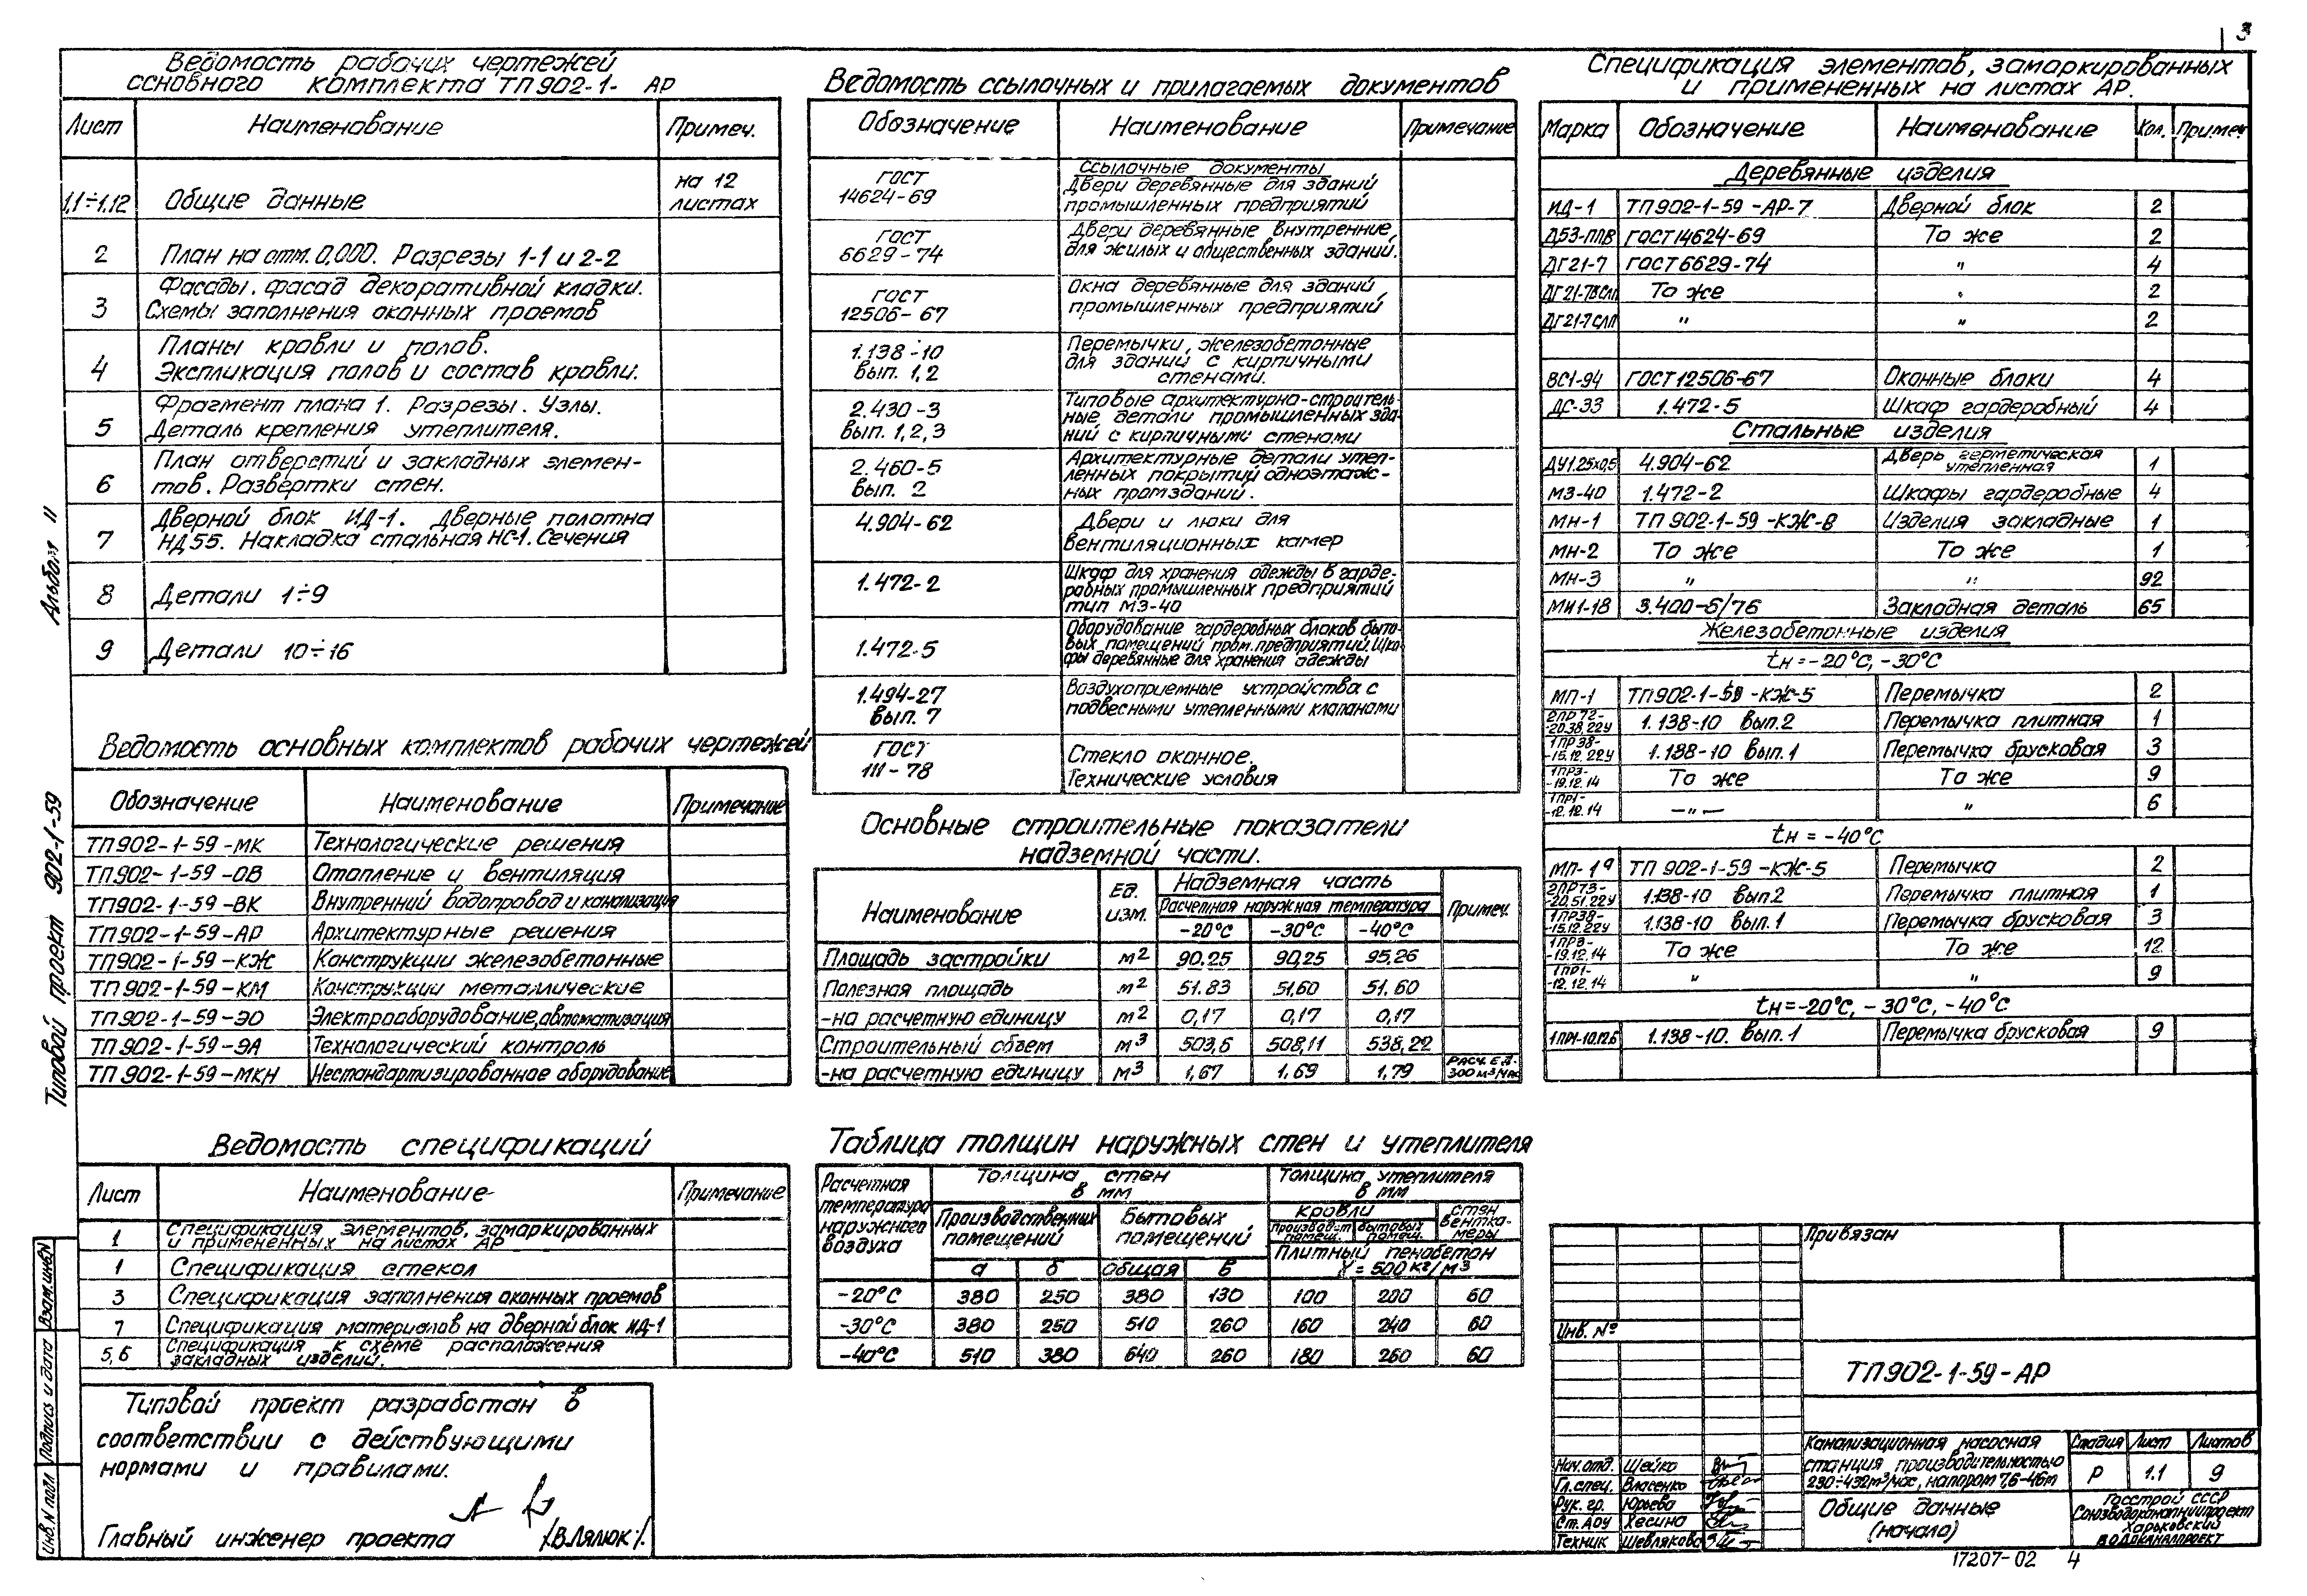 3
Ведомость рабочих чертежей
основного комплекта ТП 902-1- АР
Лист Наименование Примеч.
1,1÷1.12 Общие данные на 12 листах
2 План на отм. 0,000. Разрезы 1-1 и 2-2
3 Фасады. Фасад декоративной кладки.
Схемы заполнения оконных проемов
4 Планы кровли и полов.
Экспликация полов и состав кровли.
5 Фрагмент плана 1. Разрезы. Узлы.
Деталь крепления утеплителя.
6 План отверстий и закладных элемен-
тов. Развертки стен.
7 Дверной блок ИД-1. Дверные полотна
НД55. Накладка стальная НС-1. Сечения
8 Детали 1÷9
9 Детали 10÷16
Ведомость основных комплектов рабочих чертежей
Обозначение Наименование Примечание
ТП902-1-59-МК Технологические решения
ТП902-1-59-ОВ Отопление и вентиляция
ТП902-1-59-ВК Внутренний водопровод и канализация
ТП902-1-59-АР Архитектурные решения
ТП902-1-59-КЖ Конструкции железобетонные
ТП902-1-59-КМ Конструкции металлические
ТП902-1-59-ЭО Электрооборудование, автоматизация
ТП902-1-59-ЭА Технологический контроль
ТП902-1-59-МКН Нестандартизированное оборудование
Ведомость спецификаций
Лист Наименование Примечание
1 Спецификация элементов, замаркированных
и примененных на листах АР
1 Спецификация стекол
3 Спецификация заполнения оконных проемов
7 Спецификация материалов на дверной блок ИД-1
5,6 Спецификация к схеме расположения
закладных изделий.
Типовой проект разработан в
соответствии с действующими
нормами и правилами.
Главный инженер проекта /В.Лялюк/.
Ведомость ссылочных и прилагаемых документов
Обозначение Наименование Примечание
Ссылочные документы
ГОСТ 14624-69 Двери деревянные для зданий
промышленных предприятий
ГОСТ 6629-74 Двери деревянные внутренние
для жилых и общественных зданий.
ГОСТ 12506-67 Окна деревянные для зданий
промышленных предприятий
1.138-10 вып. 1,2 Перемычки, железобетонные
для зданий с кирпичными
стенами.
2.430-3 вып. 1,2,3 Типовые архитектурно-строитель-
ные детали промышленных зда-
ний с кирпичными стенами
2.460-5 вып. 2 Архитектурные детали утеп-
ленных покрытий одноэтаж-
ных промзданий.
4.904-62 Двери и люки для
вентиляционных камер
1.472-2 Шкаф для хранения одежды в гарде-
робных промышленных предприятий
тип МЗ-40
1.472-5 Оборудование гардеробных блоков быто-
вых помещений пром. предприятий. Шка-
фы деревянные для хранения одежды
1.494-27 вып. 7 Воздухоприемные устройства с
подвесными утепленными клапанами
ГОСТ 111-78 Стекло оконное.
Технические условия
Основные строительные показатели
надземной части.
Наименование Ед. изм. Надземная часть Примеч.
Расчетная наружная температура
-20°С -30°С -40°С
Площадь застройки м2 90.25 90.25 95,26
Полезная площадь м2 51.83 51,60 51.60
-на расчетную единицу м2 0,17 0,17 0,17
Строительный объем м3 503,6 508,11 538,22
-на расчетную единицу м3 1,67 1.69 1,79 Расч. ед. 300 м3/час
Таблица толщин наружных стен и утеплителя
Расчетная температура наружного воздуха
Толщина стен в мм Толщина утеплителя в мм
Производственных помещений Бытовых помещений Кровли Стен венткамеры
Производст. помещ. Бытовых помещ.
Плитный пенобетон
γ = 500 кг/м3
а б Общая в
-20°С 380 250 380 130 100 200 60
-30°С 380 250 510 260 160 240 60
-40°С 510 380 640 260 180 260 60
Спецификация элементов, замаркированных
и примененных на листах АР.
Марка Обозначение Наименование Кол. Примеч
Деревянные изделия
ИД-1 ТП902-1-59-АР-7 Дверной блок 2
Д53-ППВ ГОСТ14624-69 То же 2
ДГ21-7 ГОСТ6629-74 " 4
ДГ21-7ВСЛП То же " 2
ДГ21-7СЛП " " 2
ВС1-94 ГОСТ12506-67 Оконные блоки 4
ДС-33 1.472-5 Шкаф гардеробный 4
Стальные изделия
ДУ1.25х0,5 4.904-62 Дверь герметическая утепленная 1
МЗ-40 1.472-2 Шкафы гардеробные 4
МН-1 ТП 902-1-59-КЖ-8 Изделия закладные 1
МН-2 То же То же 1
МН-3 " " 92
МИ1-18 3.400-6/76 Закладная деталь 65
Железобетонные изделия
tн = -20°С, -30°С
МП-1 ТП902-1-59-КЖ-5 Перемычка 2
2ПР72-20.38.22У 1.138-10 Вып.2 Перемычка плитная 1
1ПР38-15.12.22У 1.138-10 Вып.1 Перемычка брусковая 3
1ПР3-19.12.14 То же То же 9
1ПР1-12.12.14 —"— " 6
tн = -40°С
МП-1а ТП 902-1-59-КЖ-5 Перемычка 2
2ПР73-20.51.22У 1.138-10 Вып.2 Перемычка плитная 1
1ПР38-15.12.22У 1.138-10 Вып.1 Перемычка брусковая 3
1ПР3-19.12.14 То же То же 12
1ПР1-12.12.14 " " 9
tн = -20°С, -30°С, -40°С
1ПР1-10.12.6 1.138-10. Вып.1 Перемычка брусковая 9
Привязан
Инв. №
ТП902-1-59-АР
Нач. отд. Шейко
Гл. спец. Власенко
Рук. гр. Юрьева
Ст. Арх Хесина
Техник Шевлякова
Канализационная насосная
станция производительностью
230÷432м3/час, напором 7,6-46м
Стадия Лист Листов
Р 1.1 9
Общие данные
(начало)
Госстрой СССР
Союзводоканалниипроект
Харьковский
Водоканалпроект
17207-02 4
Альбом II
Типовой проект 902-1-59
Инв. N подл Подпись и дата Взам.инвN